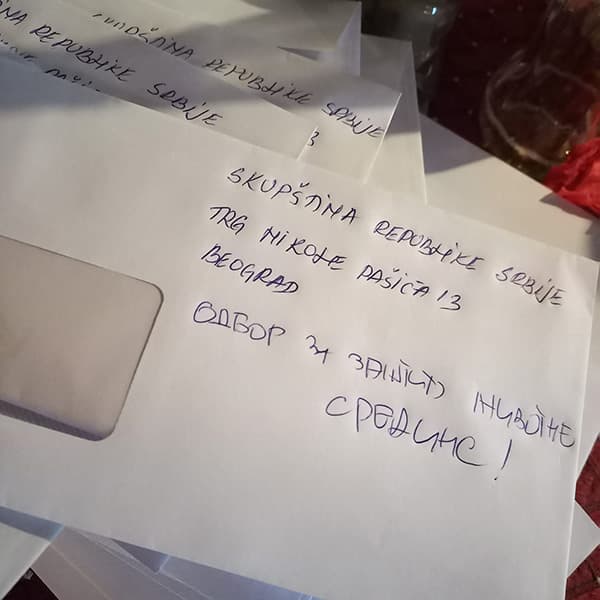 INA REPUBLIKE SRBIJE
SKUPŠTINA REPUBLIKE SRBIJE
13
SKUPŠTINA REPUBLIKE SRBIJE
TRG NIKOLE PAŠIĆA 13
BEOGRAD
ОДБОР ЗА ЗАШТИТУ ЖИВОТНЕ
СРЕДИНЕ!